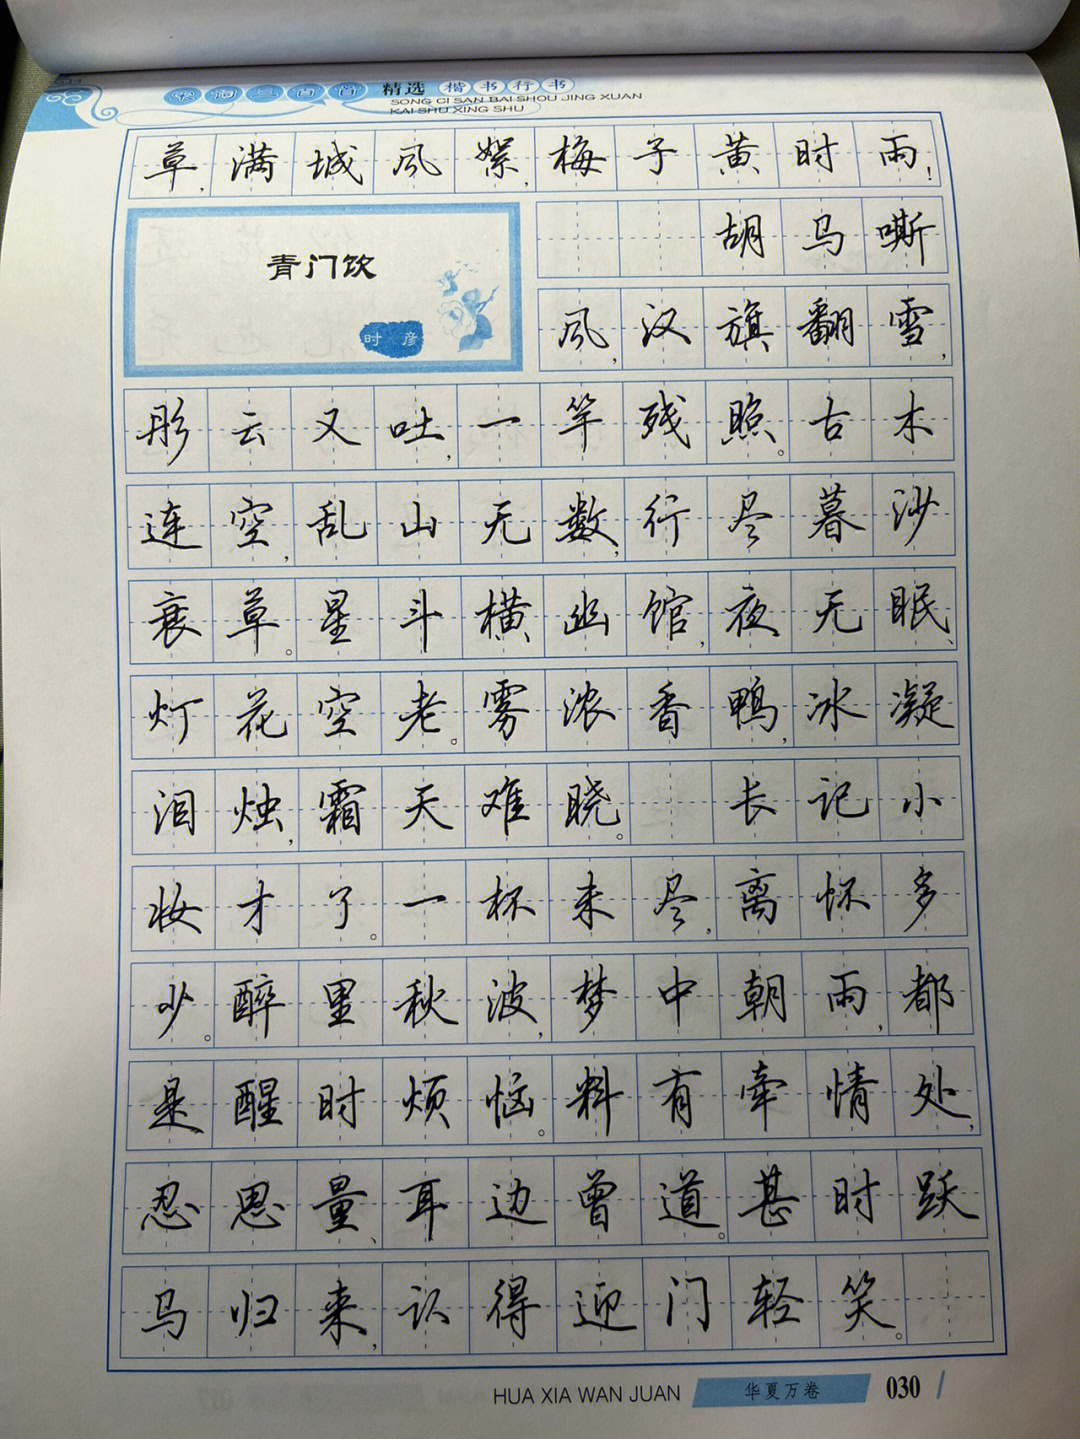 宋词三百首 精选 楷书行书
SONG CI SAN BAI SHOU JING XUAN
KAI SHU XING SHU
草，满城风絮，梅子黄时雨！
青门饮
时彦
胡马嘶
风，汉旗翻雪，
彤云又吐，一竿残照。古木
连空，乱山无数，行尽暮沙
衰草。星斗横幽馆，夜无眠、
灯花空老。雾浓香鸭，冰凝
泪烛，霜天难晓。 长记小
妆才了。一杯未尽，离怀多
少。醉里秋波，梦中朝雨，都
是醒时烦恼。料有牵情处，
忍思量、耳边曾道。甚时跃
马归来，认得迎门轻笑。
HUA XIA WAN JUAN 华夏万卷 030